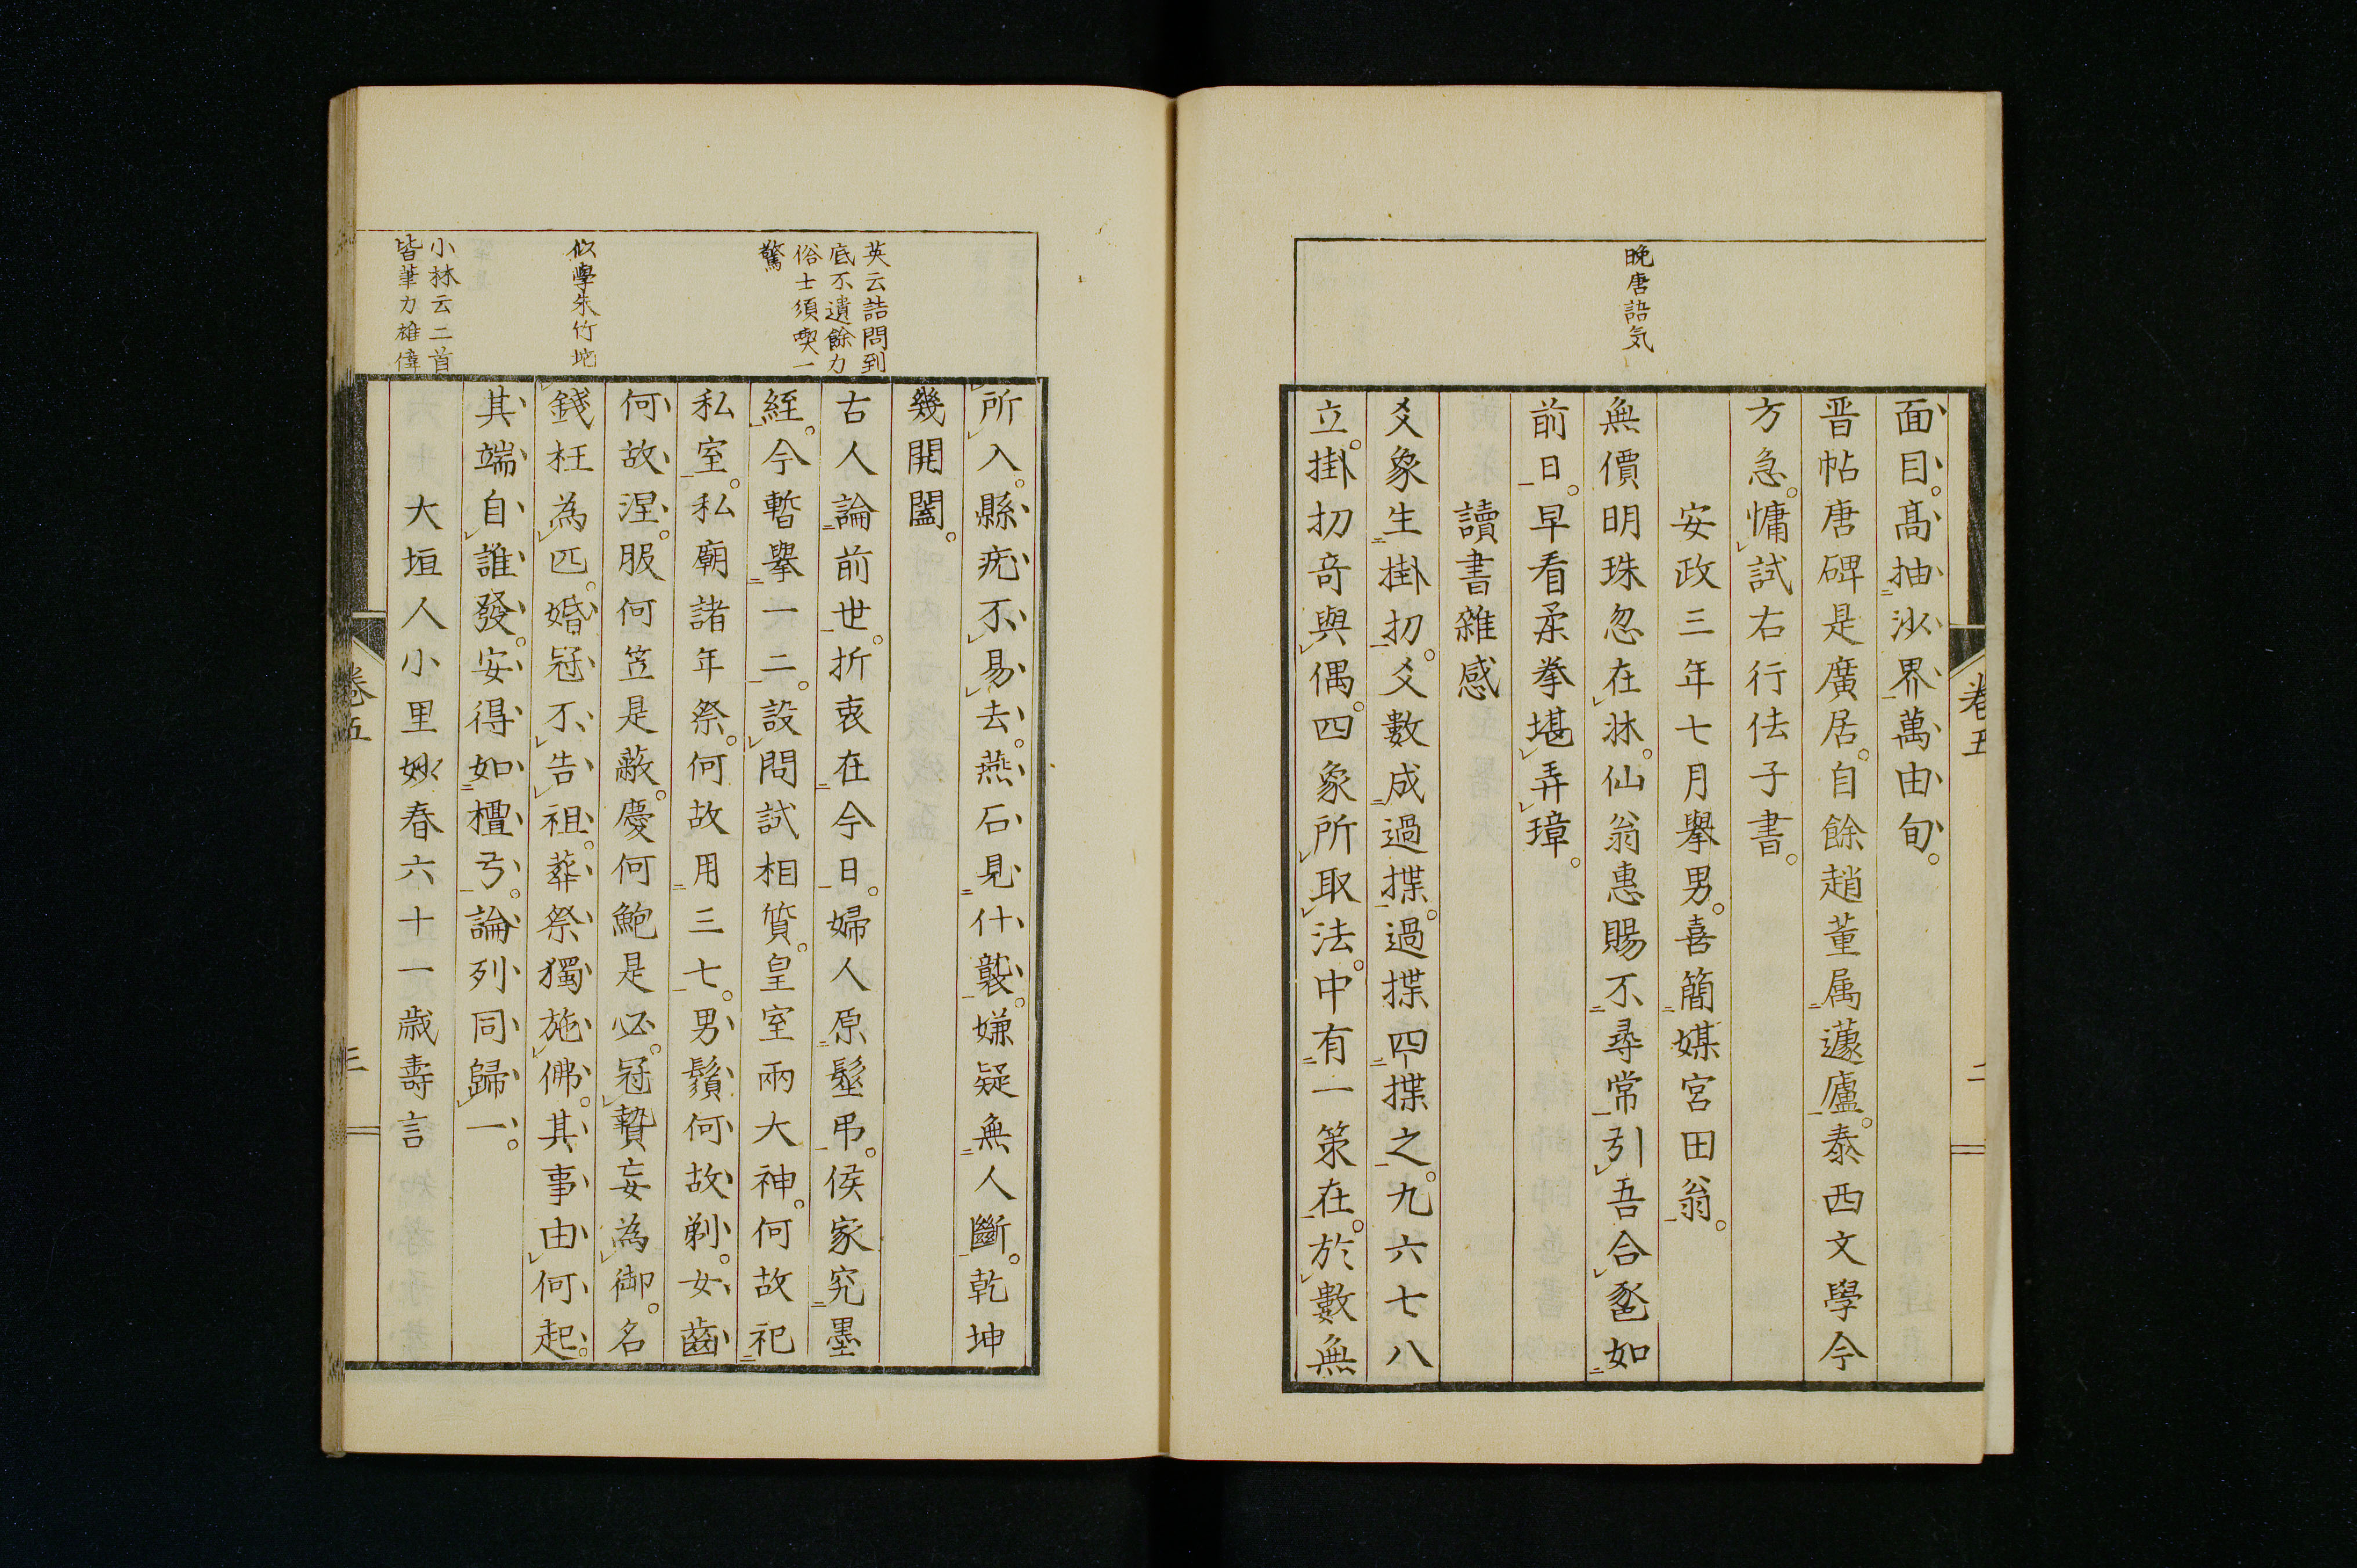 晩唐語気
面目。髙抽沙界萬由旬。
晋帖唐碑是廣居。自餘趙董属蘧廬。泰西文學今
方急。慵試右行佉子書。
安政三年七月擧男。喜簡媒宮田翁。
無價明珠忽在牀。仙翁惠賜不尋常。引吾合巹如
前日。早看柔拳堪弄璋。
讀書雜感
爻象生掛扐。爻數成過揲。過揲四揲之。九六七八
立。掛扐竒與偶。四象所取法。中有一策在。於數無
卷五
二
英云詰問到
底不遺餘力
俗士須喫一
驚
似學朱竹垞
小林云二首
皆筆力雄偉
所入。縣疣不易去。燕石見什襲。嫌疑無人斷。乾坤
幾開闔。
古人論前世。折衷在今日。婦人原髽弔。侯家究墨
絰。今暫擧一二。設問試相質。皇室兩大神。何故祀
私室。私廟諸年祭。何故用三七。男鬚何故剃。女齒
何故涅。服何笠是蔽。慶何鮑是必。冠贄妄為御。名
錢枉為匹。婚冠不告祖。葬祭獨施佛。其事由何起。
其端自誰發。安得如檀弓。論列同歸一。
大垣人小里妙春六十一歳壽言
卷五
三